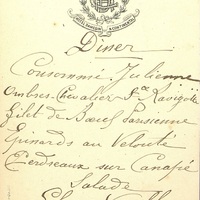 Diner
Consommé Julienne
Ombres-Chevalier Sce Ravigotte
Filet de Boeuf Parisienne
Epinards au Velouté
Perdreaux sur Canapé
Salade